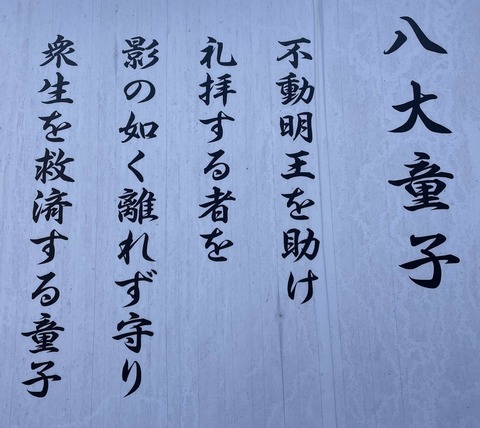 八大童子
不動明王を助け
礼拝する者を
影の如く離れず守り
衆生を救済する童子